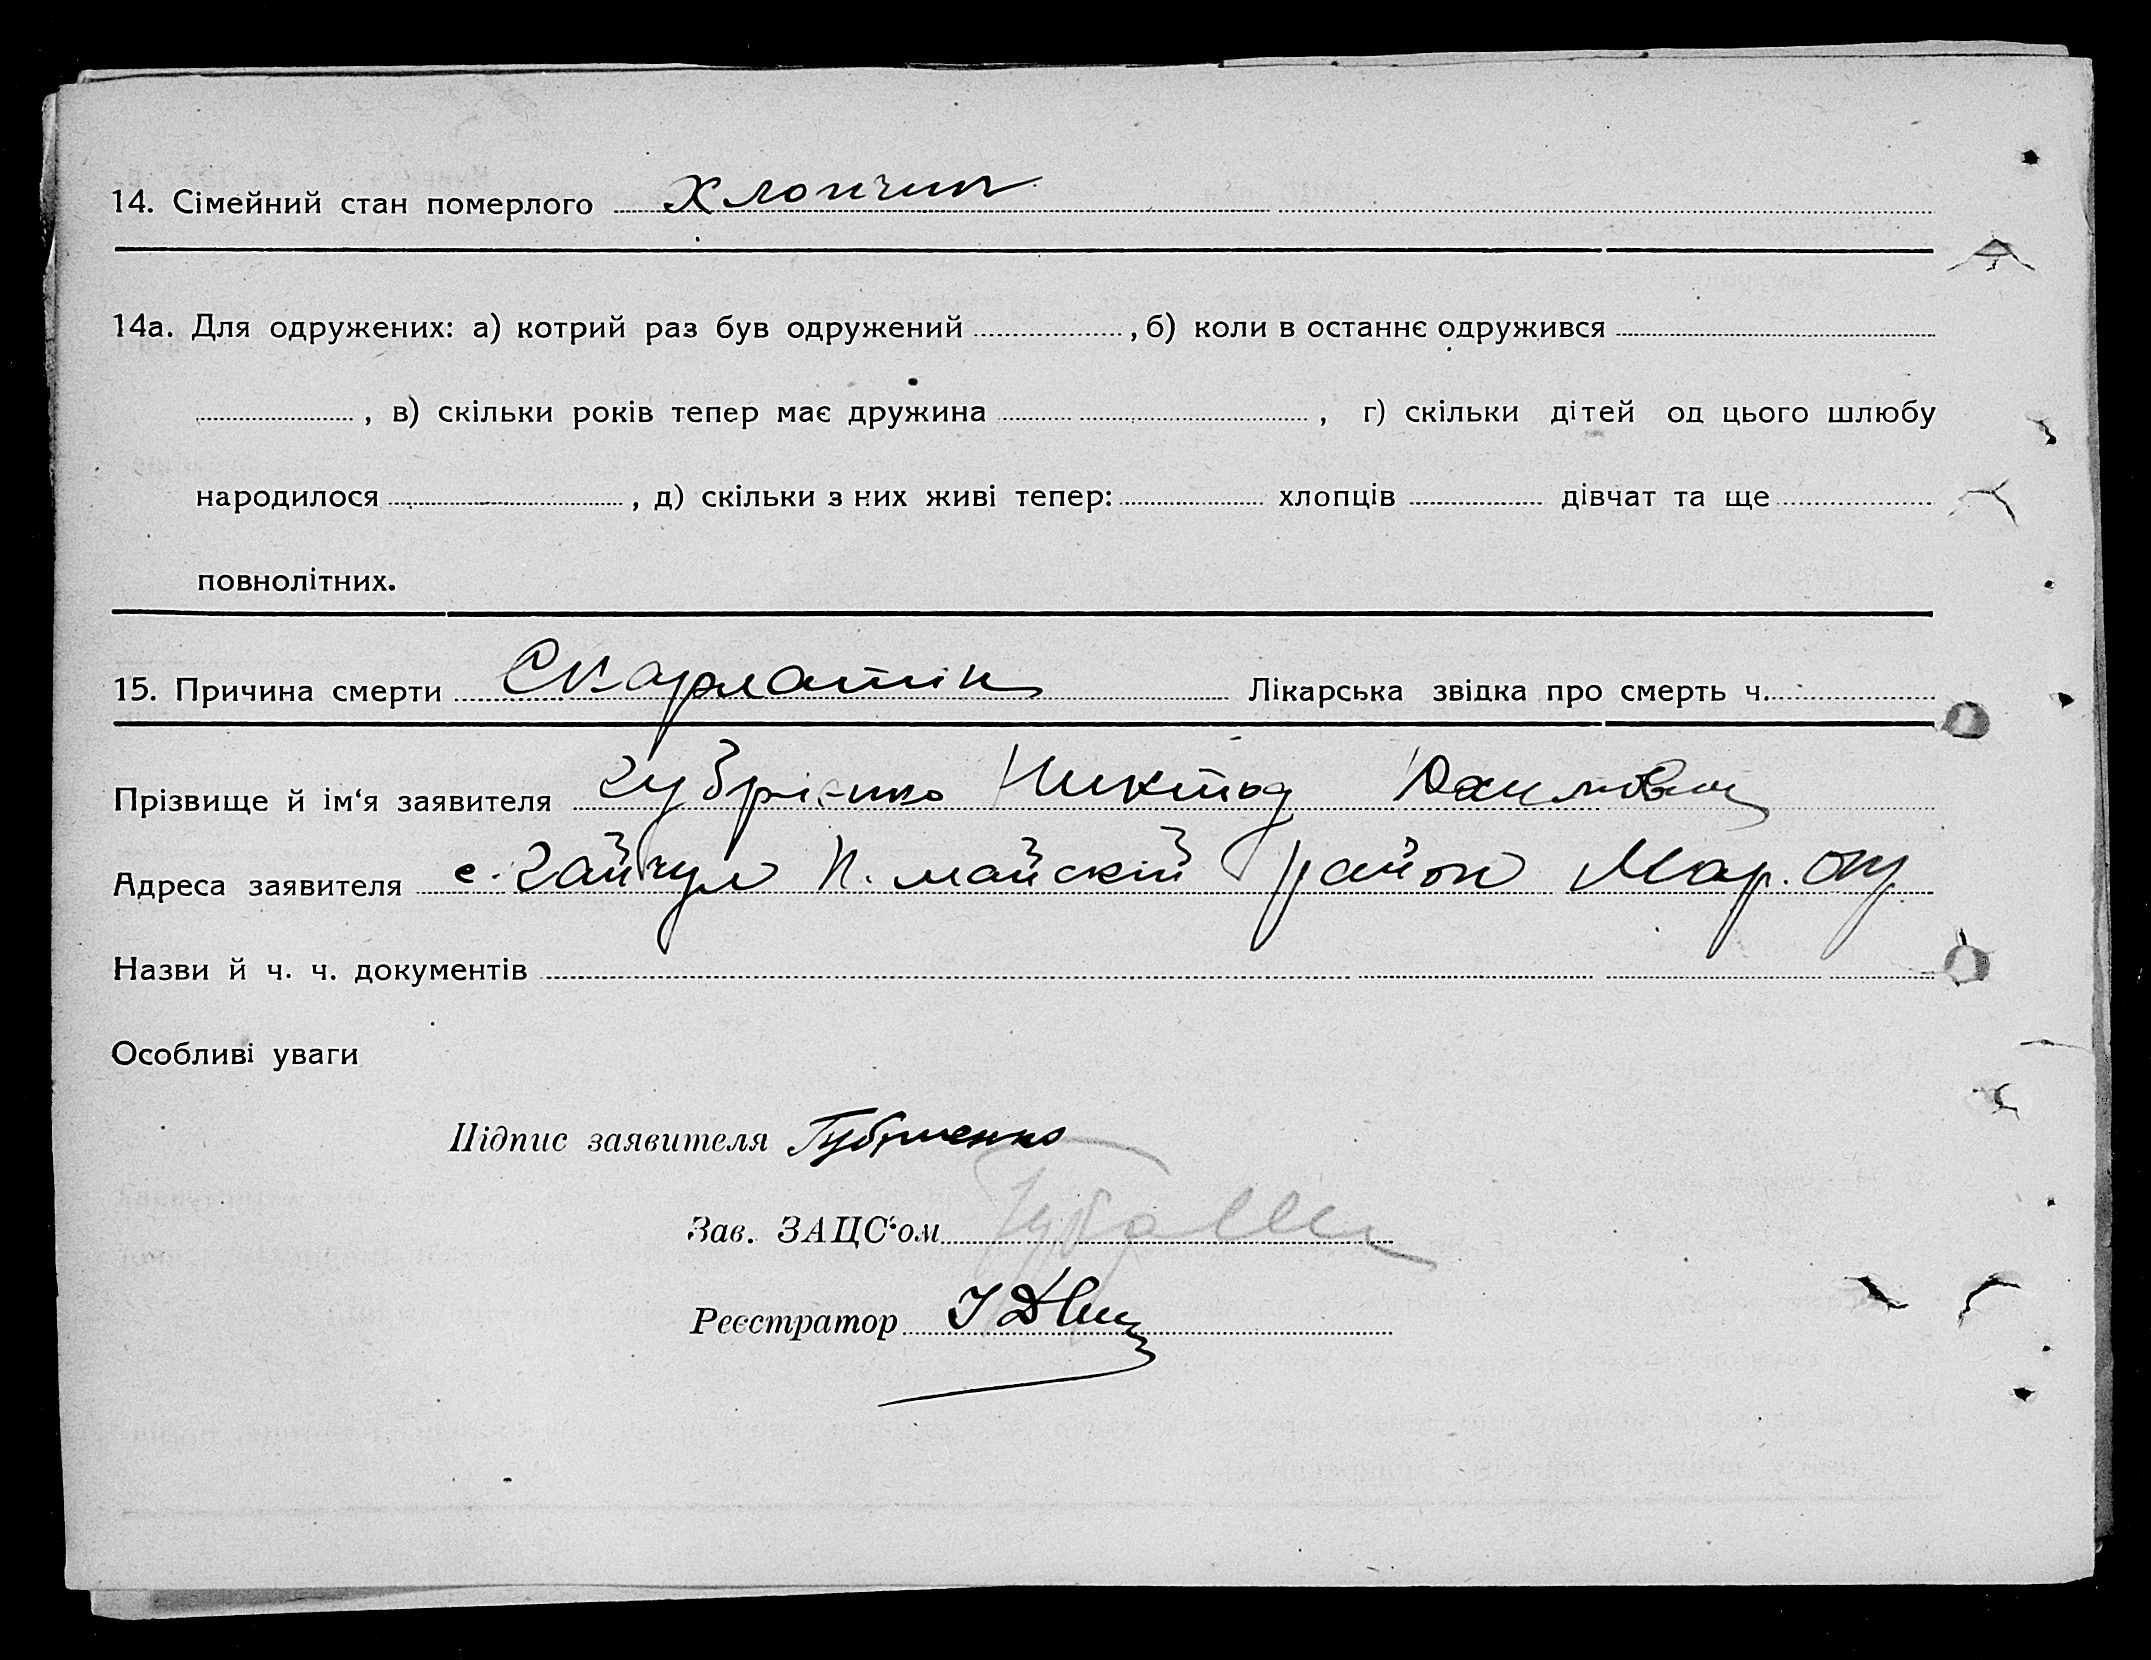 14. Сімейний стан померлого Хлопчик
14а. Для одружених: а) котрий раз був одружений , б) коли в останнє одружився
, в) скільки років тепер має дружина , г) скільки дітей од цього шлюбу
народилося , д) скільки з них живі тепер: хлопців дівчат та ще
повнолітних.
15. Причина смерти Скарлатін Лікарська звідка про смерть ч.
Прізвище й ім‘я заявителя
Адреса заявителя с. Гайчул П. майскій район Мар. окр.
Назви й ч. ч. документів
Особливі уваги
Підпис заявителя
Зав. ЗАЦС‘ом
Реєстратор